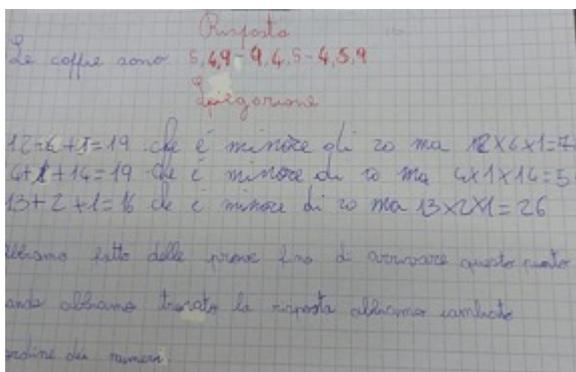 Risposta
Le coppie sono 5,4,9 - 9,4,5 - 4,5,9
Spiegazione
12+6+1=19 che è minore di 20 ma 12x6x1=7
4+1+14=19 che è minore di 20 ma 4x1x14=5
13+2+1=16 che è minore di 20 ma 13x2x1=26
bbiamo fatto delle prove fino di arrivare questo punto
ando abbiamo trovato la risposta abbiamo cambiato
ordine dei numeri.